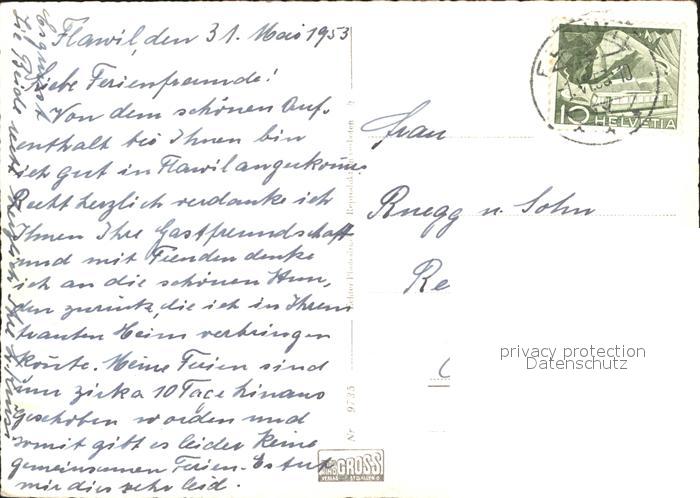 Flawil, den 31. Mai 1953
Liebe Ferienfreunde!
Von dem schönen Auf-
enthalt bei Ihnen bin
ich gut in Flawil angekommen
Recht herzlich verdanke ich
Ihnen Ihre Gastfreundschaft
und mit Freuden denke
ich an die schönen Stun-
den zurück, die ich in Ihrem
trauten Heim verbringen
konnte. Meine Ferien sind
um zirka 10 Tage hinaus
geschoben worden und
somit gibt es leider keine
gemeinsamen Ferien. Es tut
mir dies sehr leid.
Sie Beide
Nr. 9735
GROSS
VERLAG ST. GALLEN
10 HELVETIA
Frau
Ruegg u. Sohn
Re
privacy protection
Datenschutz